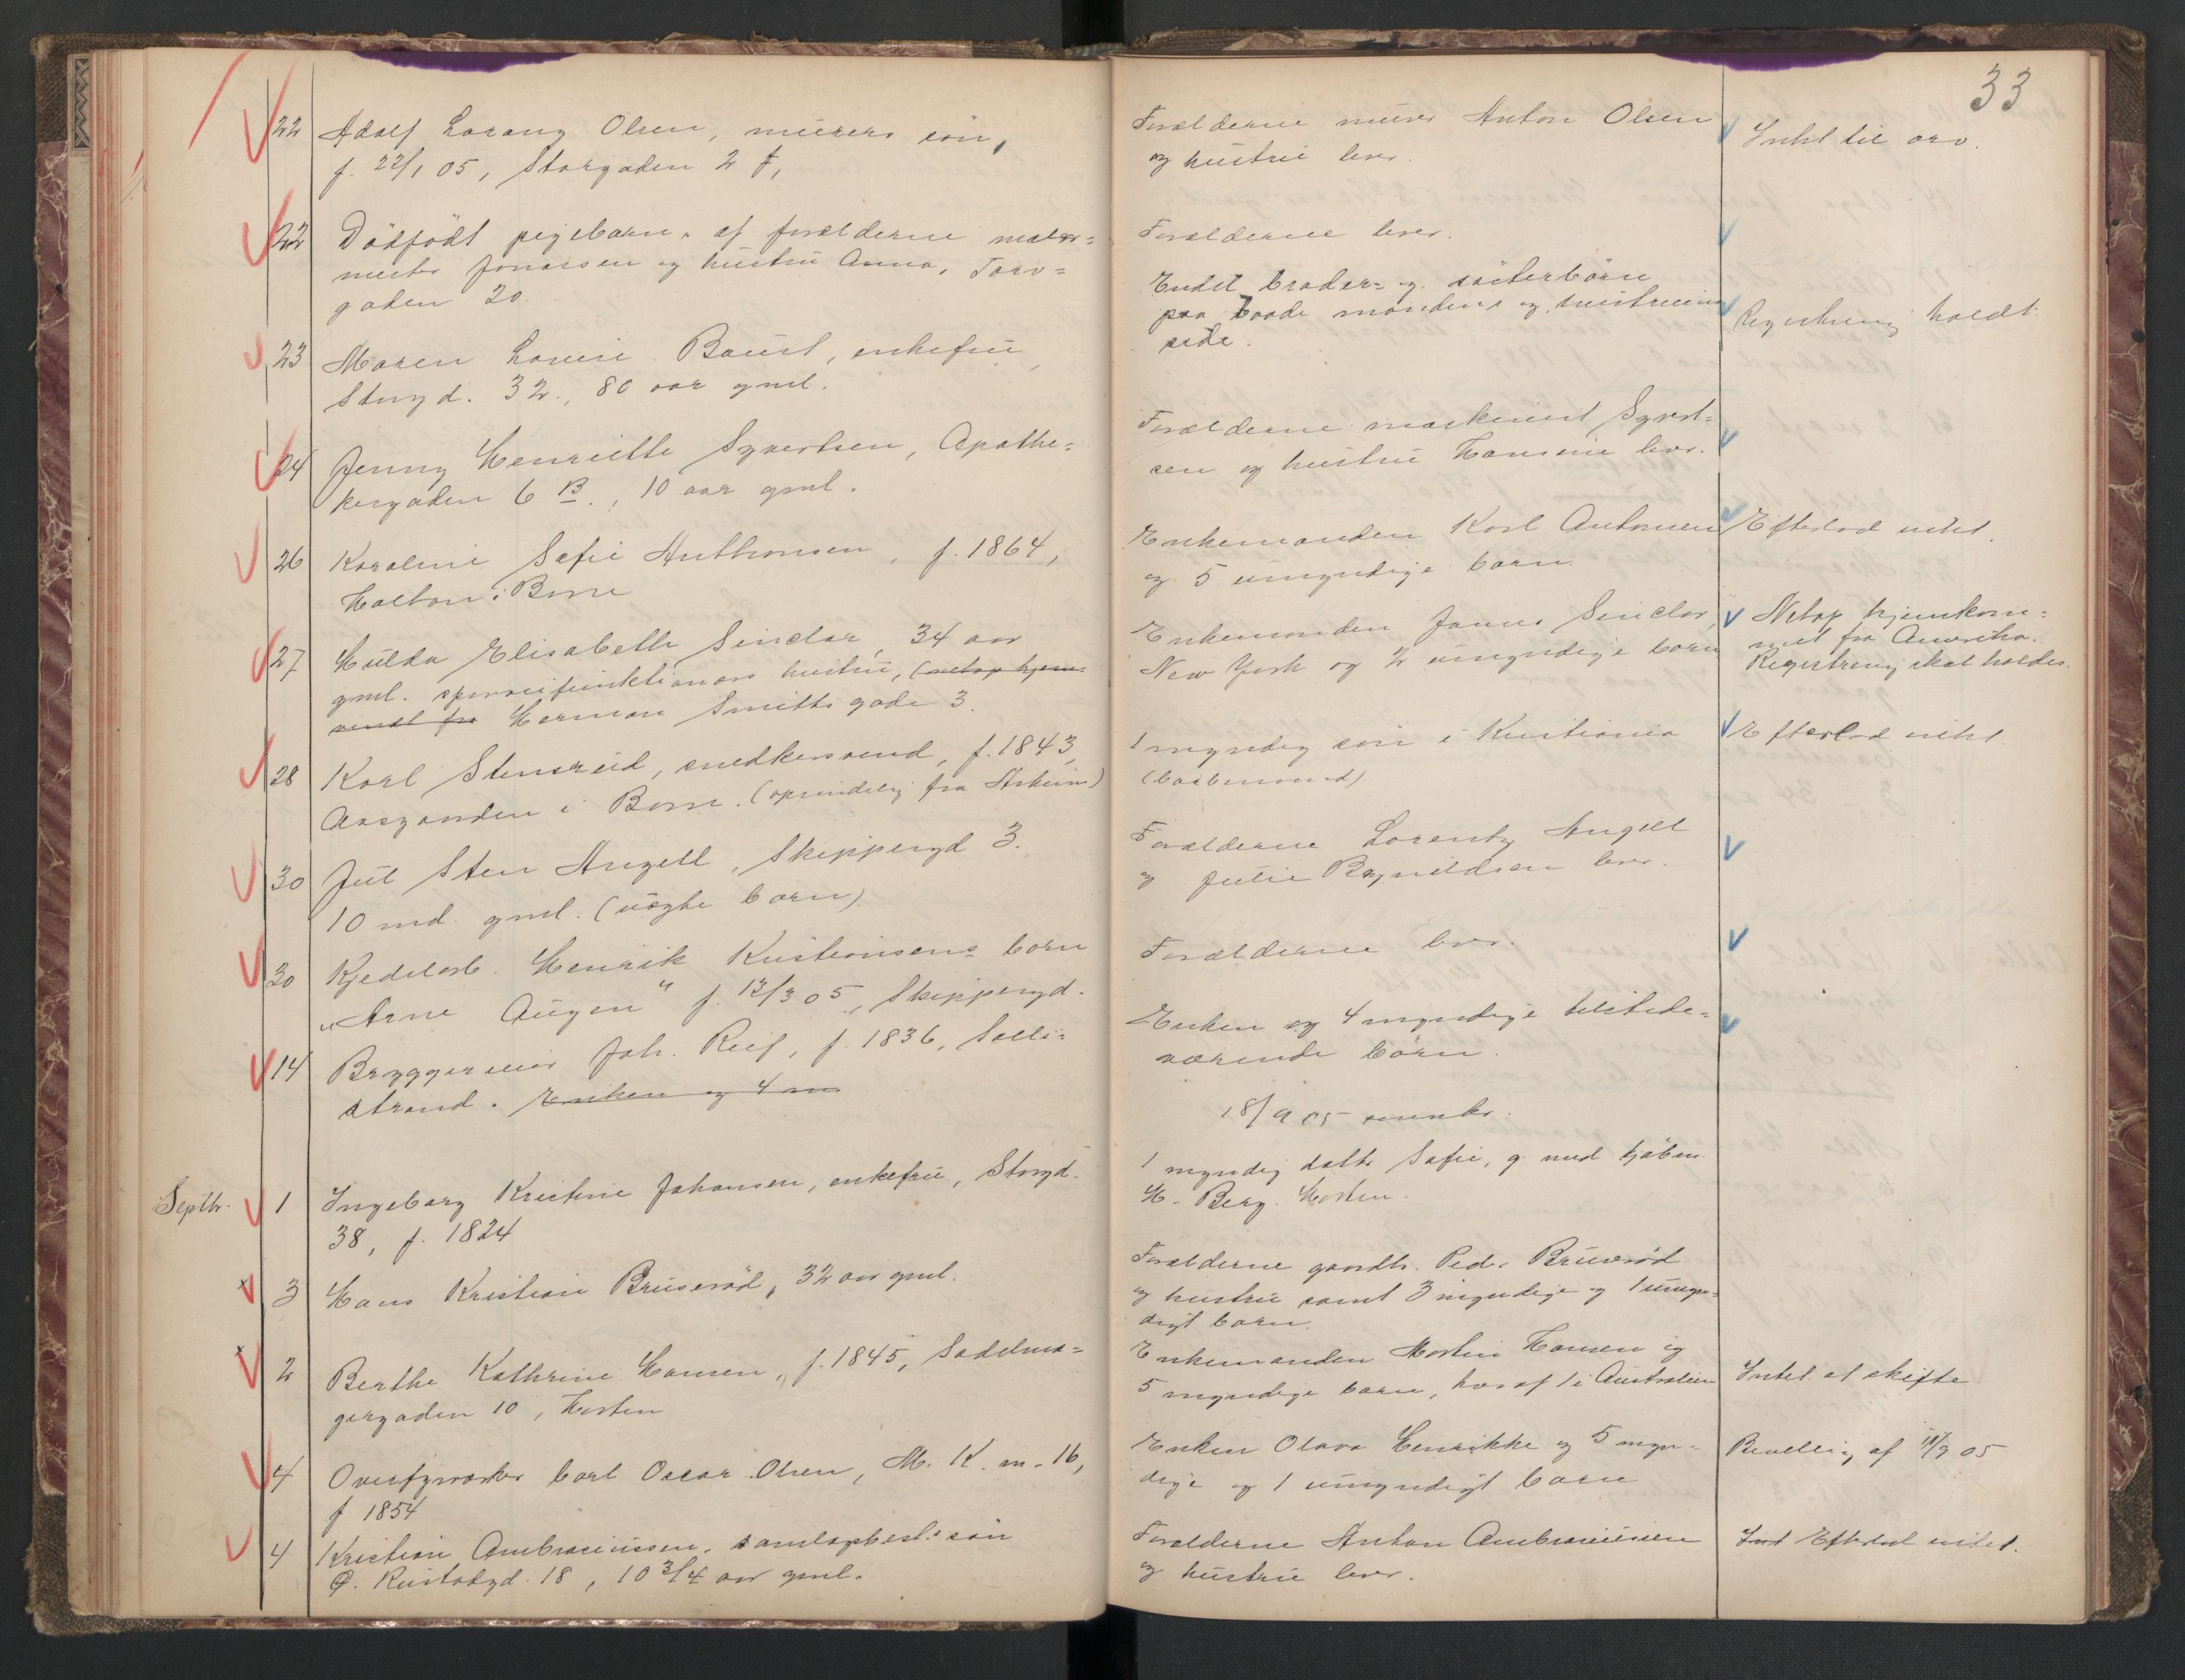 33
22 Adolf Lorang Olsen, murers sön,
f. 22/1 05, Storgaden 2 f,
Forælderne murer Anton Olsen
og hustru lever.
Intet til arv.
22 Dödfödt pigebarn af forælderne maler=
mester Jonassen og hustru Anna, Torv=
gaden 20.
Forælderne lever.
23 Maren Lovise Baust, enkefru,
Storgd. 32., 80 aar gml.
Endel broder= og sösterbörn
paa baade mandens og hustruens
side.
Registrering holdt.
24 Jenny Henriette Syvertsen, Apothe=
kergaden 6 B., 10 aar gml.
Forælderne maskinist Syvert=
sen og hustru Hansine lever.
26 Karoline Sofie Anthonsen, f. 1864,
Holtan i Borre
Enkemanden Karl Antonsen
og 5 umyndige barn.
Efterlod intet.
27 Hulda Elisabeth Sinclar, 34 aar
gml. sporveifunktionærs hustru, (netop hjem=
vendt fra Herman Smitts gade 3.
Enkemanden James Sinclar,
New York og 2 umyndige barn
Netop hjemkom=
met fra Amerika.
Registrering skal holdes.
28 Karl Stensrud, snedkersvend, f. 1843,
Aasgaarden i Borre. (oprindelig fra Askim)
1 myndig sön i Kristiania
Efterlod intet.
30 Jul Sten Angell, Skippergd 3.
10 md. gml. (uægte barn)
Forælderne Lorentz Angell
og Julie Bagnildsen lever.
30 Kjedelarb. Henrik Kristiansens barn
"Arne Augen" f. 13/3 05, Skippergd.
Forælderne lever.
14 Bryggerieier Joh. Reif, f. 1836, Solli=
strand. Enken og 4 m
Enken og 4 myndige tilstede=
værende börn.
18/9 05
Septbr. 1 Ingeborg Kristine Johansen, enkefru, Storgd.
38, f. 1824
1 myndig datter Sofie, g. med kjöbm.
H. Berg. Horten.
3 Hans Kristian Bruseröd, 32 aar gml.
Forælderne gaardbr. Peder Bruseröd
og hustru samt 3 myndige og 1 umyn=
digt barn.
2 Berthe Kathrine Hansen, f. 1845, Sadelma=
gergaden 10, Horten
Enkemanden Martin Hansen og
5 myndige barn, hvoraf 1 i Australien
Intet at skifte
4 Overfyrværker Carl Oscar Olsen, M. K. m. 16,
f 1854
Enken Olava Henrikke og 5 myn=
dige og 1 umyndigt barn
Bevilling af 18/9 05
4 Kristian Ambrosiussen, samlagsbest. sön
Ö. Rustadgd. 18, 10 3/4 aar gml.
Forælderne Anton Ambrosiussen
og hustru lever.
Int Efterlod intet.